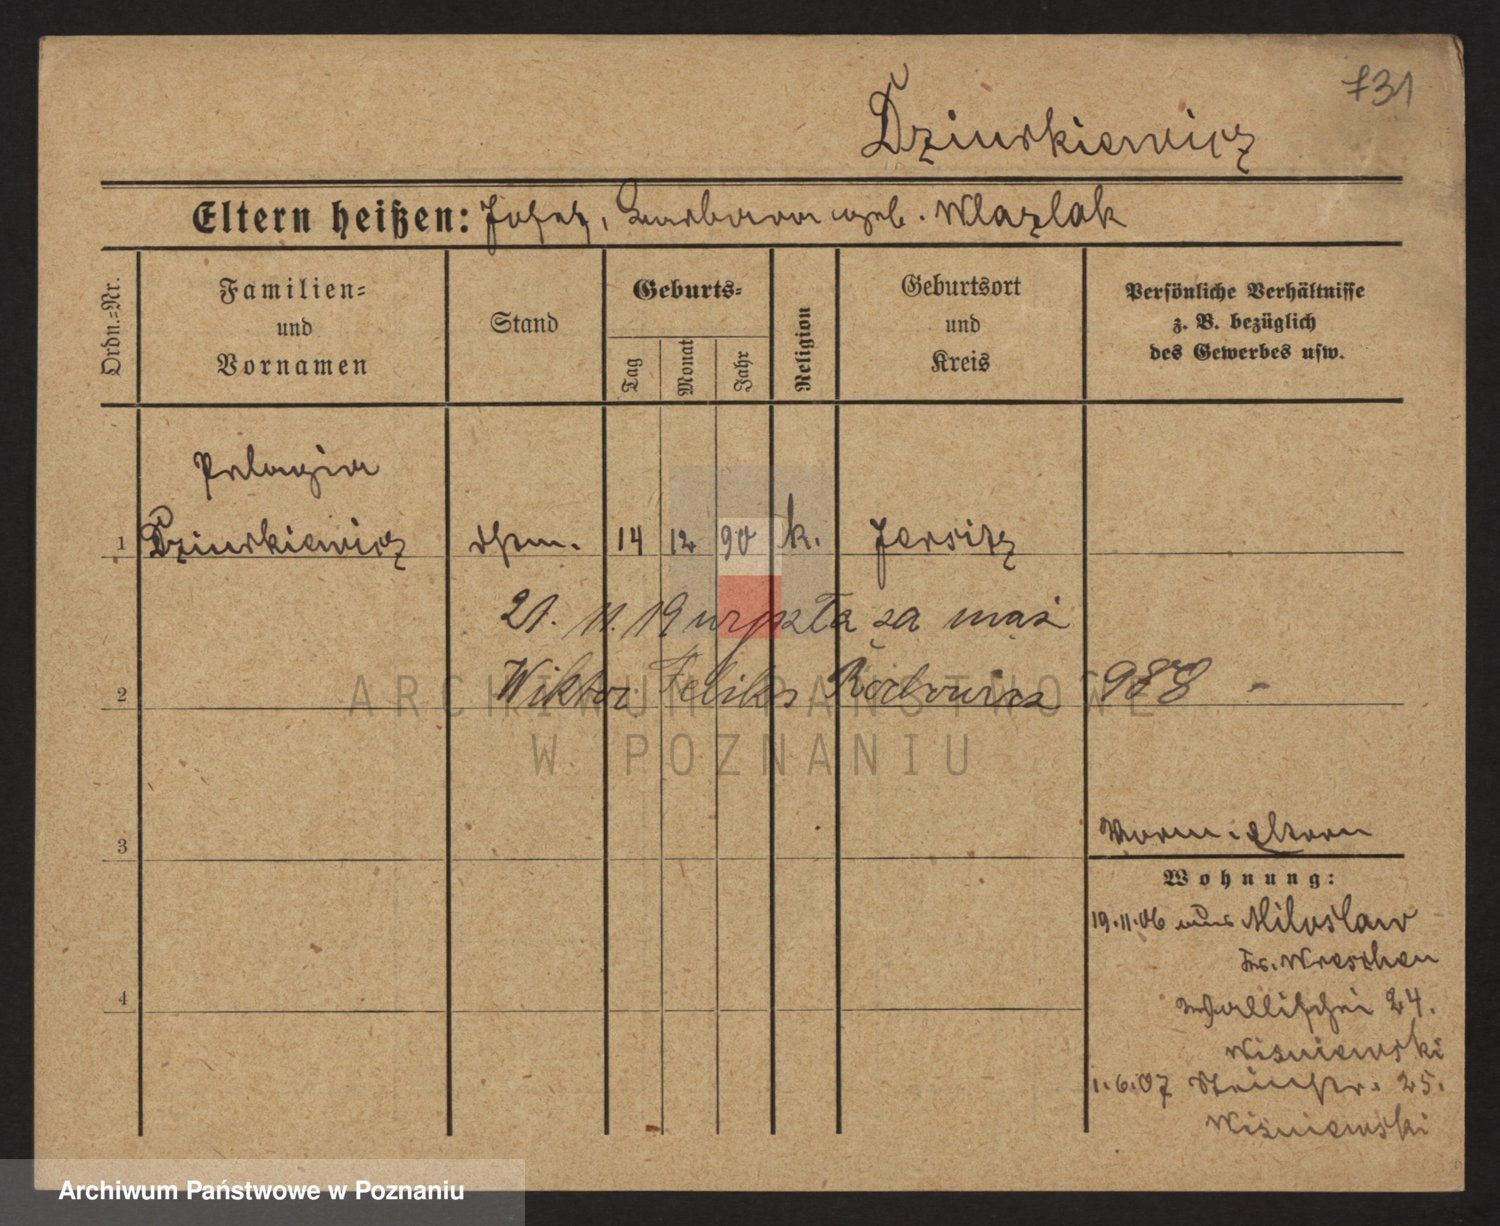 731
Dziurkiewicz
Eltern heißen: Josef, Barbara geb. Wlazlak
Ordn.=Nr.
Familien=
und
Vornamen
Stand
Geburts=
Tag
Monat
Jahr
Religion
Geburtsort
und
Kreis
Persönliche Verhältnisse
z. B. bezüglich
des Gewerbes usw.
Pelagia
1 Dziurkiewicz 14 12 90 k. Jersitz
21. 11. 19 za mąż
2 Wiktor Feliks 988 -
ARCHIWUM PAŃSTWOWE
W POZNANIU
3
Eltern
Wohnung:
19.11.06 aus Miloslaw
Kr. Wreschen
4 Wallischei 24.
Wiśniewski
1.6.07 25.
Wiśniewski
Archiwum Państwowe w Poznaniu